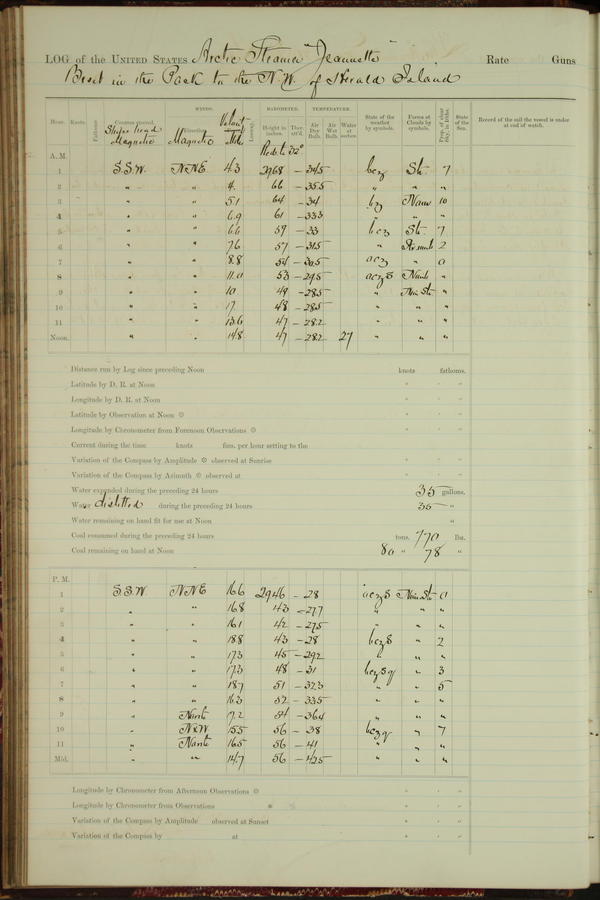 LOG of the UNITED STATES Arctic Steamer "Jeannette" Rate Guns
Beset in the Pack to the N.W. of Herald Island
WINDS. BAROMETER. TEMPERATURE.
Hour. Knots. Fathoms. Courses steered. Ships head Magnetic Direction. Magnetic Velocity Height in inches. Ther. att'd. Air Dry Bulb. Air Wet Bulb. Water at surface. State of the weather by symbols. Forms of Clouds by symbols. Prop. of clear Sky, in 10ths. State of the Sea. Record of the sail the vessel is under at end of watch.
Red. to 32°
A. M.
1 S.S.W. NNE 4.3 2968 -345 bcz St. 7
2 " " 4. 66 -355 " " "
3 " " 5.1 64 -34 bz None 10
4 " " 6.9 61 -333 " " "
5 " " 6.6 59 -33 bcz St. 7
6 " " 7.6 57 -315 " 2
7 " " 8.8 54 -305 acz " 0
8 " " 11.0 53 -295 aczs Nimb "
9 " " 10 49 -285 " Nim St "
10 " " 17 48 -285 " " "
11 " " 13.6 47 -282 " " "
Noon. " " 14.8 47 -282 27 " " "
Distance run by Log since preceding Noon knots fathoms.
Latitude by D. R. at Noon ° ' "
Longitude by D. R. at Noon ° ' "
Latitude by Observation at Noon ☉ ° ' "
Longitude by Chronometer from Forenoon Observations ☉ ° ' "
Current during the time knots fms. per hour setting to the
Variation of the Compass by Amplitude ☉ observed at Sunrise ° ' "
Variation of the Compass by Azimuth ☉ observed at ° ' "
Water expended during the preceding 24 hours 35 gallons.
Water distilled during the preceding 24 hours 35 "
Water remaining on hand fit for use at Noon "
Coal consumed during the preceding 24 hours tons. 770 lbs.
Coal remaining on hand at Noon 80 " 78 "
P. M.
1 S.S.W. NNE 16.6 2946 -28 aczs Nim St 0
2 " " 16.8 43 -277 " " "
3 " " 16.1 42 -275 " " "
4 " " 18.8 43 -28 bczs " 2
5 " " 17.3 45 -292 " " "
6 " " 17.3 48 -31 bczsq " 3
7 " " 18.7 51 -323 " " 5
8 " " 16.3 52 -335 " " "
9 " North 17.2 54 -364 " " "
10 " NxW 15.5 56 -38 bczq " 7
11 " North 16.5 56 -41 " " "
Mid. " " 14.7 56 -425 " " "
Longitude by Chronometer from Afternoon Observations ☉ ° ' "
Longitude by Chronometer from Observations ° ' "
Variation of the Compass by Amplitude observed at Sunset ° ' "
Variation of the Compass by at ° ' "